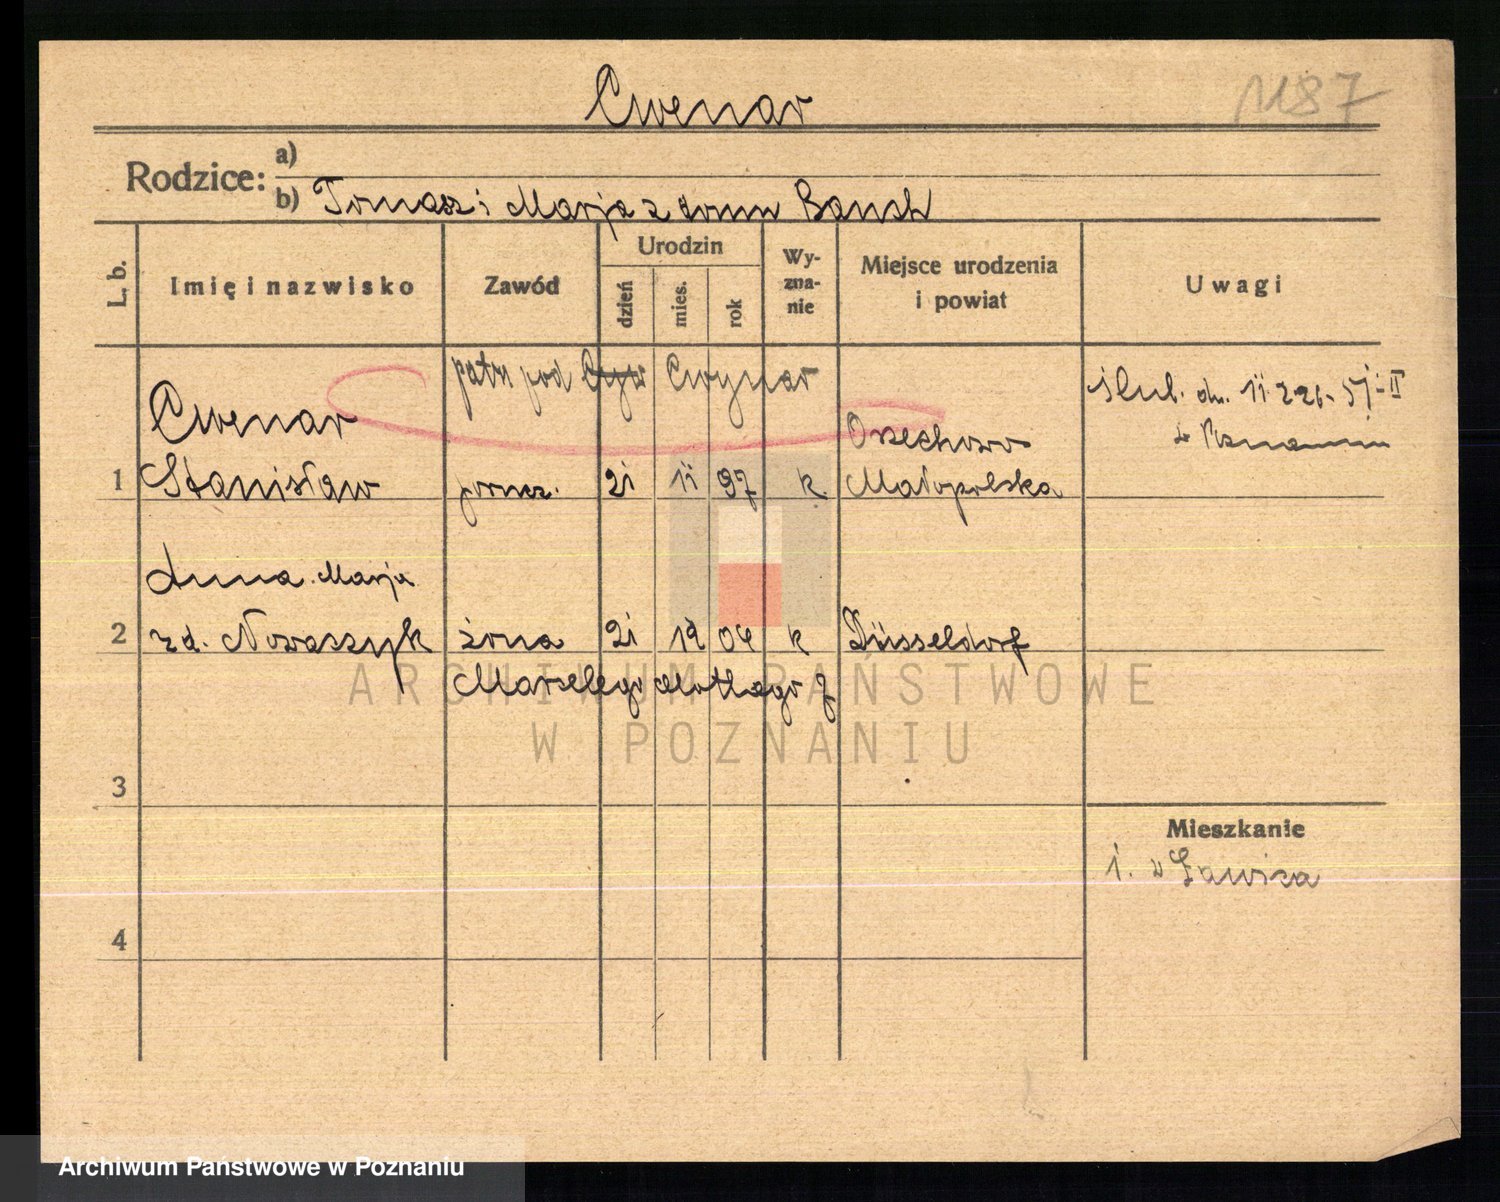 Cwenar
1187
Rodzice: a)
b) Tomasz i Marja z domu
L. b.
Imię i nazwisko
Zawód
Urodzin
dzień
mies.
rok
Wy-
zna-
nie
Miejsce urodzenia
i powiat
Uwagi
patrz pod Cyw Cwynar
1 Cwenar
Stanisław
21 11 97 k.
Orzechowo
Małopolska
ślub. dn. 11.2.26. 57-II
w Poznaniu
2 Anna Marja
zd. Nowaszyk żona 21 12 04 k Düsseldorf
3
Mieszkanie
1. w Ławica
4
ARCHIWUM PAŃSTWOWE
W POZNANIU
Archiwum Państwowe w Poznaniu